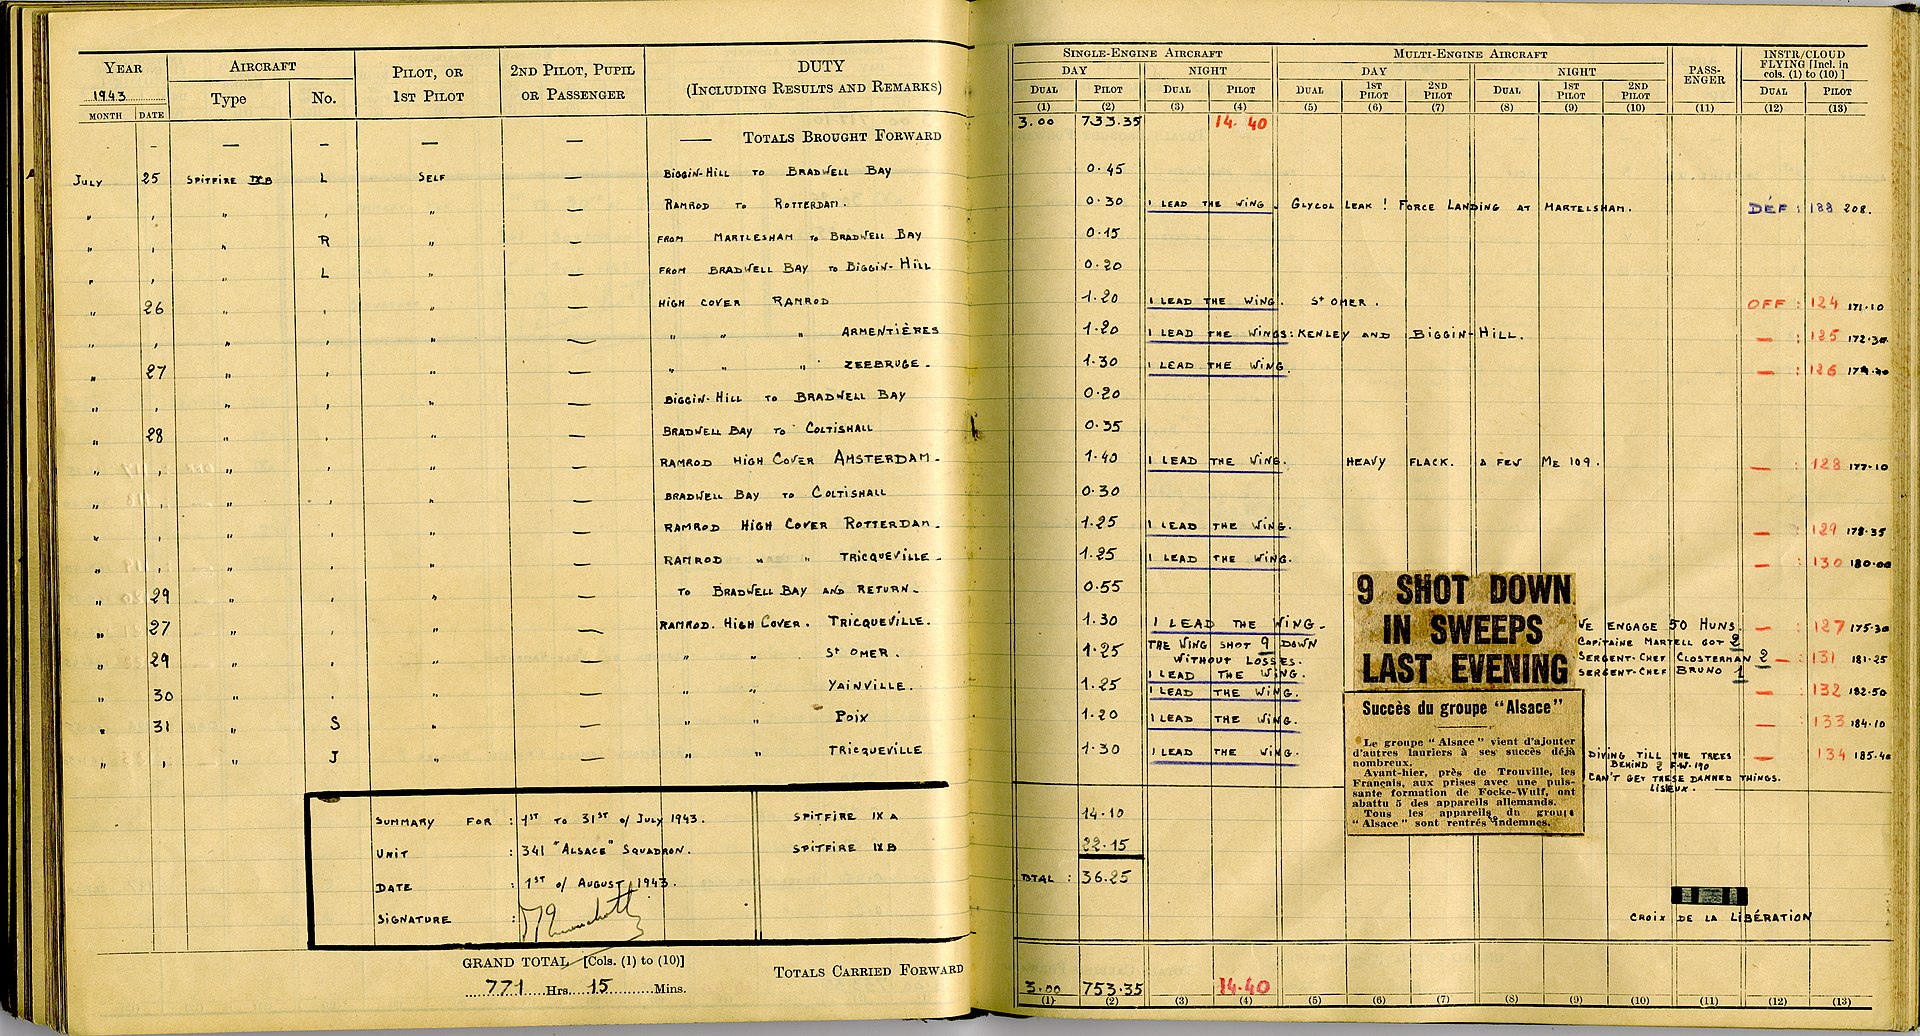 YEAR AIRCRAFT PILOT, OR 1ST PILOT 2ND PILOT, PUPIL OR PASSENGER DUTY (INCLUDING RESULTS AND REMARKS)
1943 Type No.
MONTH DATE
— — — — — — — TOTALS BROUGHT FORWARD
JULY 25 SPITFIRE IXB L SELF — BIGGIN-HILL TO BRADWELL BAY
" , " , " — RAMROD TO ROTTERDAM.
" , " R " — FROM MARTLESHAM TO BRADWELL BAY
" , " L " — FROM BRADWELL BAY TO BIGGIN-HILL
" 26 " , " — HIGH COVER RAMROD
" , " , " — " " " ARMENTIÈRES
" 27 " , " — " " " ZEEBRUGE.
" , " , " — BIGGIN-HILL TO BRADWELL BAY
" 28 " , " — BRADWELL BAY TO COLTISHALL
" , " , " — RAMROD HIGH COVER AMSTERDAM.
" , " , " — BRADWELL BAY TO COLTISHALL
" , " , " — RAMROD HIGH COVER ROTTERDAM.
" , " , " — RAMROD " " TRICQUEVILLE.
" 29 " , " — TO BRADWELL BAY AND RETURN.
" 27 " , " — RAMROD. HIGH COVER. TRICQUEVILLE.
" 29 " , " — " " ST OMER.
" 30 " , " — " " YAINVILLE.
" 31 " S " — " " POIX
" , " J " — " " TRICQUEVILLE
SUMMARY FOR : 1ST TO 31ST of JULY 1943. SPITFIRE IX A
UNIT : 341 "ALSACE" SQUADRON. SPITFIRE IX B
DATE : 1ST of AUGUST 1943.
SIGNATURE :
GRAND TOTAL [Cols. (1) to (10)]
771 Hrs. 15 Mins.
TOTALS CARRIED FORWARD
SINGLE-ENGINE AIRCRAFT MULTI-ENGINE AIRCRAFT PASS-ENGER INSTR/CLOUD FLYING [Incl. in cols. (1) to (10)]
DAY NIGHT DAY NIGHT
DUAL PILOT DUAL PILOT DUAL 1ST PILOT 2ND PILOT DUAL 1ST PILOT 2ND PILOT DUAL PILOT
(1) (2) (3) (4) (5) (6) (7) (8) (9) (10) (11) (12) (13)
3.00 733.35 14.40
0.45
0.30 I LEAD THE WING. GLYCOL LEAK! FORCE LANDING AT MARTELSHAM. DÉF : 188 208.
0.15
0.20
1.20 I LEAD THE WING. ST OMER. OFF : 124 171.10
1.20 I LEAD THE WINGS: KENLEY AND BIGGIN-HILL. — : 125 172.30
1.30 I LEAD THE WING. — : 126
0.20
0.35
1.40 I LEAD THE WING. HEAVY FLACK. A FEW ME 109. — : 128 177.10
0.30
1.25 I LEAD THE WING. — 129 178.35
1.25 I LEAD THE WING. — 130 180.00
0.55
1.30 I LEAD THE WING. WE ENGAGE 50 HUNS. — 127 175.30
CAPITAINE MARTELL GOT 2
1.25 THE WING SHOT 9 DOWN WITHOUT LOSSES. SERGENT-CHEF CLOSTERMAN 2 — 131 181.25
I LEAD THE WING. SERGENT-CHEF BRUNO 1
1.25 I LEAD THE WING. — 132 182.50
1.20 I LEAD THE WING. — 133 184.10
1.30 I LEAD THE WING. DIVING TILL THE TREES — 134 185.40
BEHIND 2 F.W. 190
CAN'T GET THESE DAMNED THINGS.
LISIEUX.
9 SHOT DOWN
IN SWEEPS
LAST EVENING
Succès du groupe "Alsace"
Le groupe "Alsace" vient d'ajouter
d'autres lauriers à ses succès déjà
nombreux.
Avant-hier, près de Trouville, les
Français, aux prises avec une puis-
sante formation de Focke-Wulf, ont
abattu 5 des appareils allemands.
Tous les appareils du groupe
"Alsace" sont rentrés indemnes.
14.10
22.15
TOTAL : 36.25
CROIX DE LA LIBÉRATION
3.00 753.35 14.40
(1) (2) (3) (4) (5) (6) (7) (8) (9) (10) (11) (12) (13)